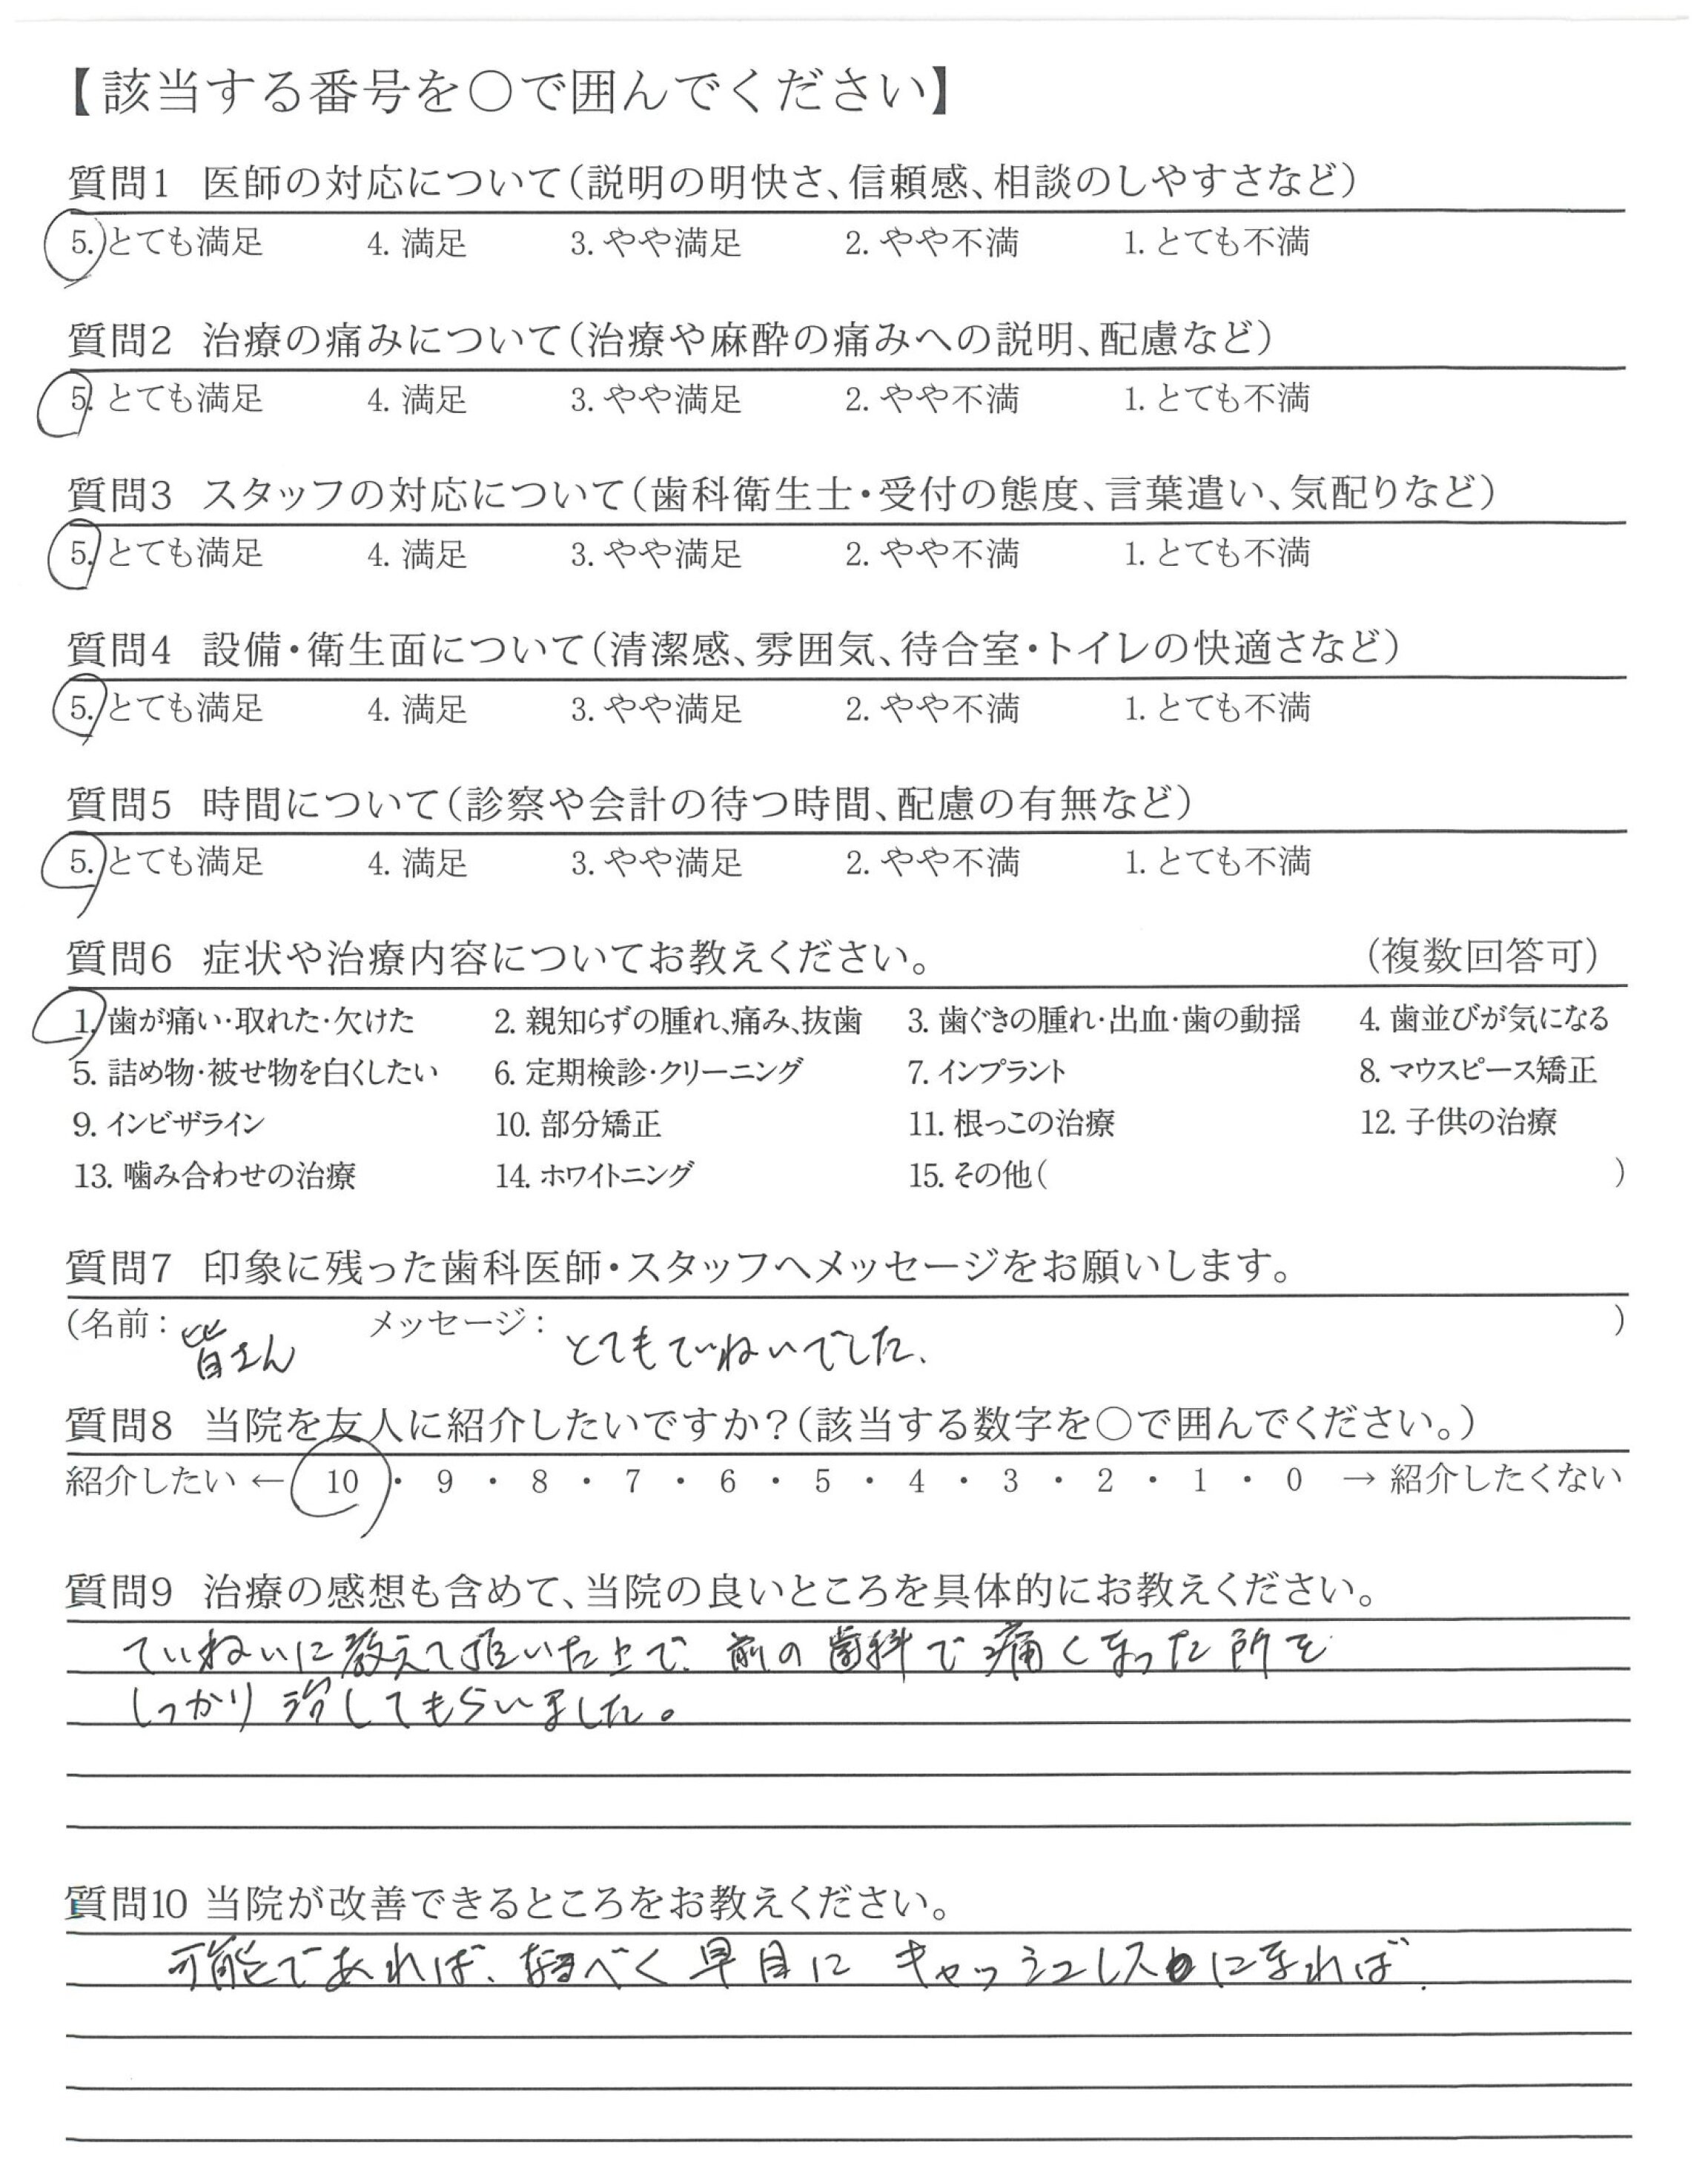 【該当する番号を〇で囲んでください】
質問1 医師の対応について(説明の明快さ、信頼感、相談のしやすさなど)
5. とても満足 4. 満足 3. やや満足 2. やや不満 1. とても不満
質問2 治療の痛みについて(治療や麻酔の痛みへの説明、配慮など)
5. とても満足 4. 満足 3. やや満足 2. やや不満 1. とても不満
質問3 スタッフの対応について(歯科衛生士・受付の態度、言葉遣い、気配りなど)
5. とても満足 4. 満足 3. やや満足 2. やや不満 1. とても不満
質問4 設備・衛生面について(清潔感、雰囲気、待合室・トイレの快適さなど)
5. とても満足 4. 満足 3. やや満足 2. やや不満 1. とても不満
質問5 時間について(診察や会計の待つ時間、配慮の有無など)
5. とても満足 4. 満足 3. やや満足 2. やや不満 1. とても不満
質問6 症状や治療内容についてお教えください。 (複数回答可)
1. 歯が痛い・取れた・欠けた 2. 親知らずの腫れ、痛み、抜歯 3. 歯ぐきの腫れ・出血・歯の動揺 4. 歯並びが気になる
5. 詰め物・被せ物を白くしたい 6. 定期検診・クリーニング 7. インプラント 8. マウスピース矯正
9. インビザライン 10. 部分矯正 11. 根っこの治療 12. 子供の治療
13. 噛み合わせの治療 14. ホワイトニング 15. その他( )
質問7 印象に残った歯科医師・スタッフへメッセージをお願いします。
(名前: 皆さん メッセージ: とてもていねいでした、 )
質問8 当院を友人に紹介したいですか?(該当する数字を〇で囲んでください。)
紹介したい ← 10 ・ 9 ・ 8 ・ 7 ・ 6 ・ 5 ・ 4 ・ 3 ・ 2 ・ 1 ・ 0 → 紹介したくない
質問9 治療の感想も含めて、当院の良いところを具体的にお教えください。
ていねいに教えて頂いた上で、前の歯科で痛くなった所を
しっかり治してもらいました。
質問10 当院が改善できるところをお教えください。
可能であれば、なるべく早目にキャッシュレスになれば、